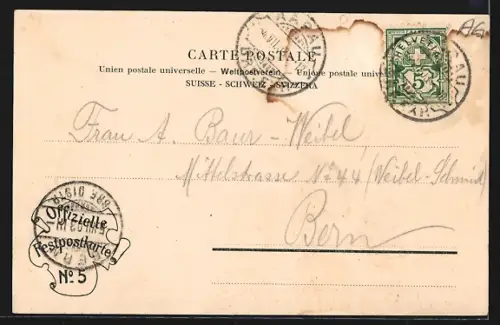 AG
AARAU
CARTE POSTALE
Unien postale universelle – Weltpostverein – Unione postale
SUISSE - SCHWEIZ - SVIZZERA
HELVETIA
5
Frau A. Baur-Weibel
Mittelstrasse No 44 (Weibel-Schmid)
Bern
BRF. DISTR.
Offizielle
Festpostkarte
No. 5